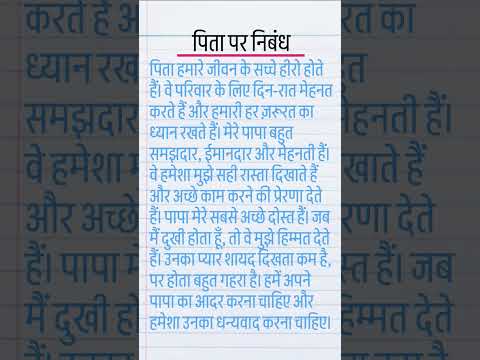 पिता पर निबंध
पिता हमारे जीवन के सच्चे हीरो होते
हैं। वे परिवार के लिए दिन-रात मेहनत
करते हैं और हमारी हर ज़रूरत का
ध्यान रखते हैं। मेरे पापा बहुत
समझदार, ईमानदार और मेहनती हैं।
वे हमेशा मुझे सही रास्ता दिखाते हैं
और अच्छे काम करने की प्रेरणा देते
हैं। पापा मेरे सबसे अच्छे दोस्त हैं। जब
मैं दुखी होता हूँ, तो वे मुझे हिम्मत देते
हैं। उनका प्यार शायद दिखता कम है,
पर होता बहुत गहरा है। हमें अपने
पापा का आदर करना चाहिए और
हमेशा उनका धन्यवाद करना चाहिए।